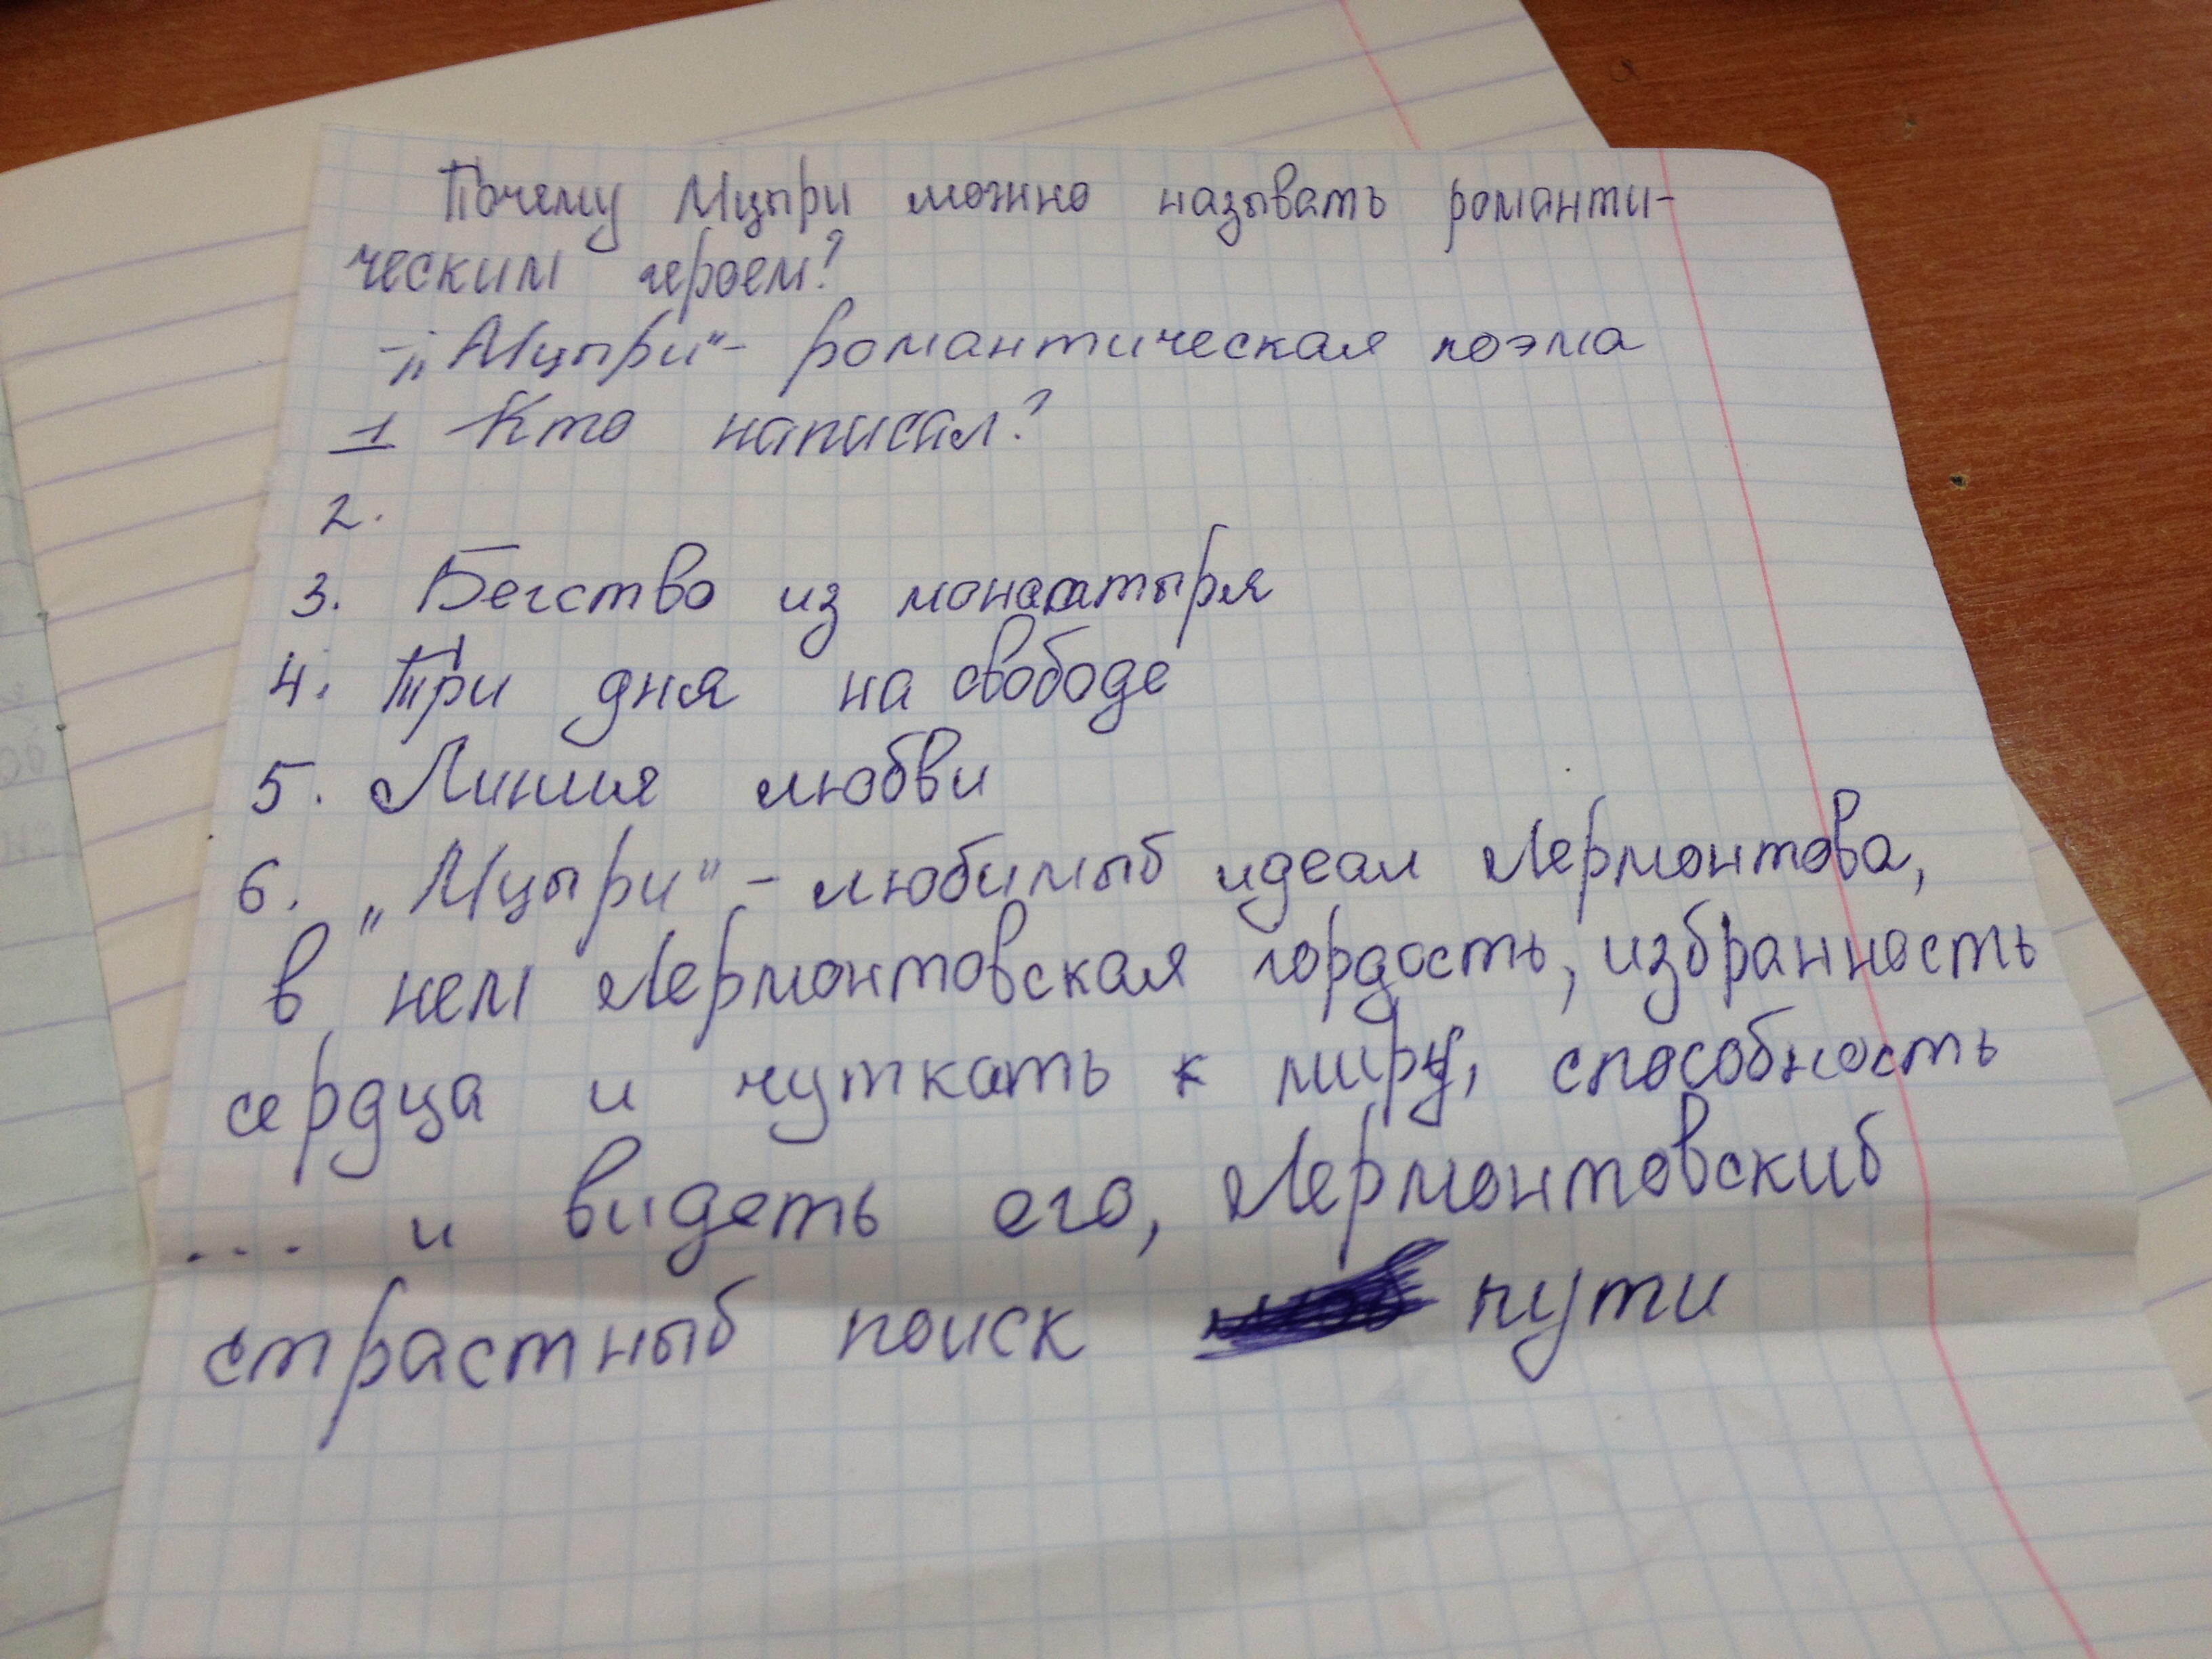 Почему Мцыри можно называть романти-
ческим героем?
-„Мцыри"- романтическая поэма
1 Кто написал?
2.
3. Бегство из монастыря
4. Три дня на свободе
5. Линия любви
6. „Мцыри" - любимый идеал Лермонтова,
в нем Лермонтовская гордость, избранность
сердца и чуткать к миру, способность
... и видеть его, Лермонтовский
страстный поиск пути